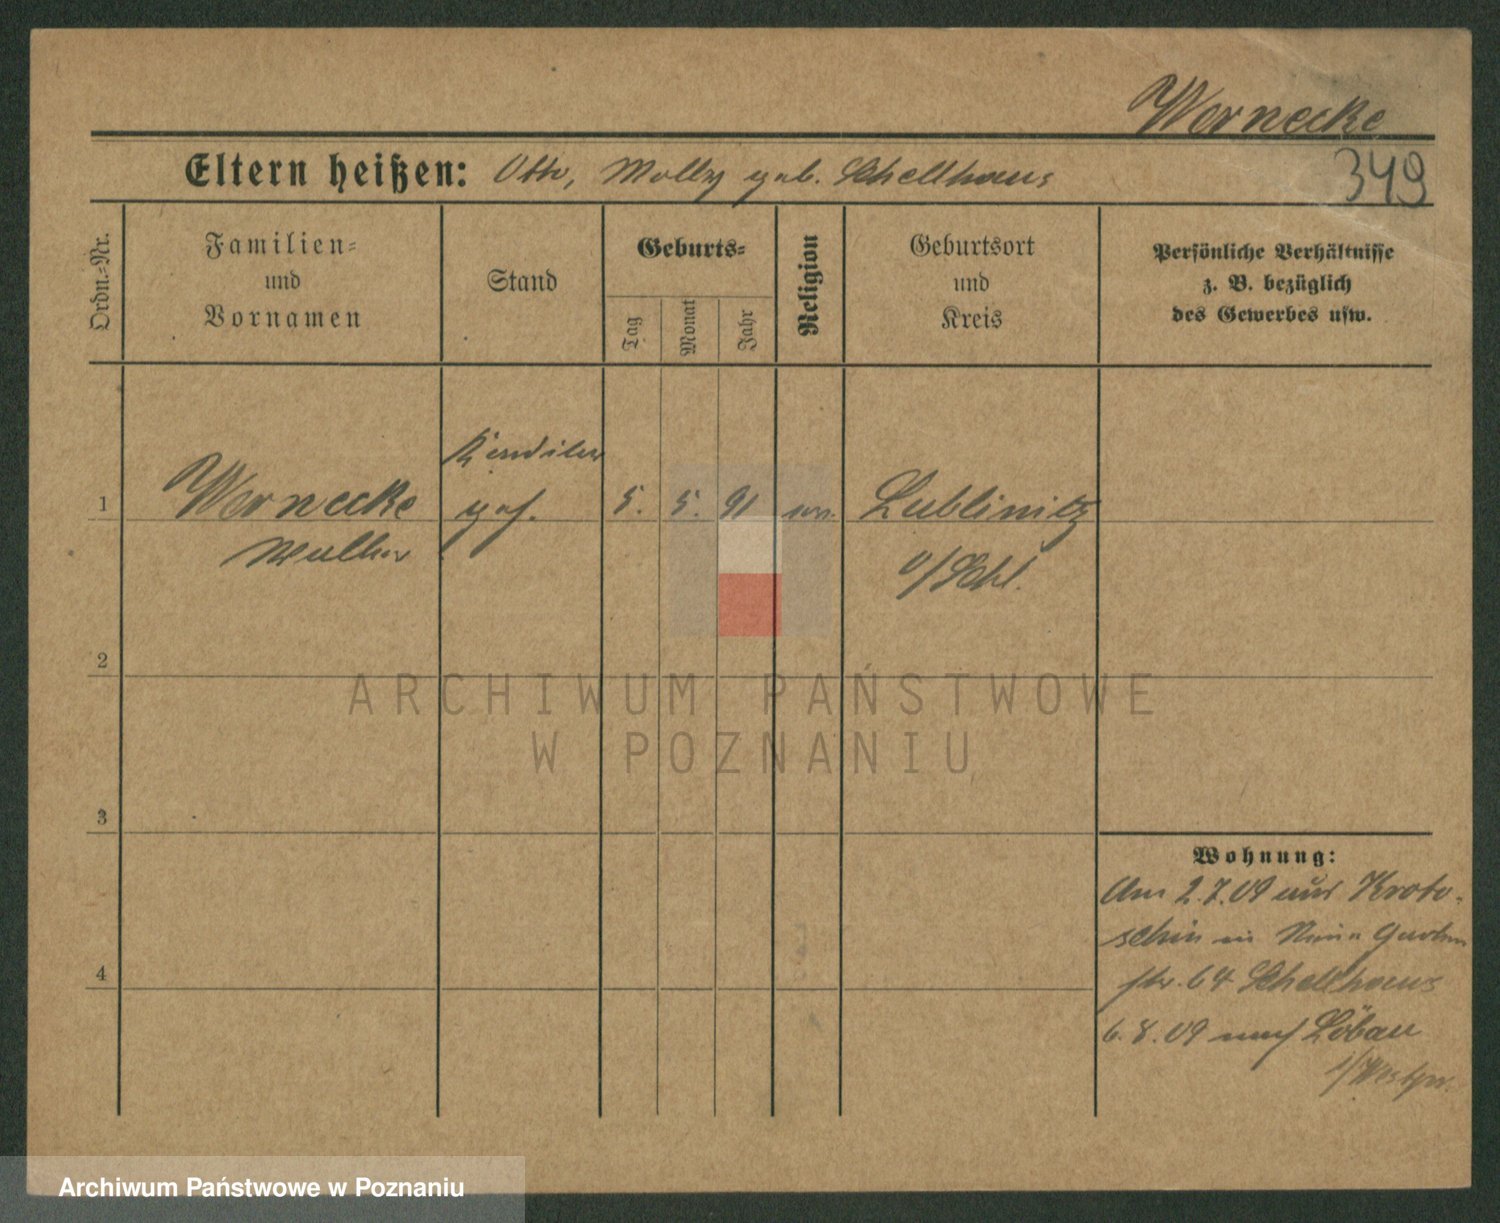 Wernecke
Eltern heißen: Otto, Molly geb. Schellhaus
349
Ordn.-Nr.
Familien-
und
Vornamen
Stand
Geburts-
Tag
Monat
Jahr
Religion
Geburtsort
und
Kreis
Persönliche Verhältnisse
z. B. bezüglich
des Gewerbes usw.
1
Wernecke
Walter
5. 5. 91
Lublinitz
O/Schl.
2
3
4
ARCHIWUM PAŃSTWOWE
W POZNANIU
Wohnung:
Am 2.7.09 aus Kroto-
schin
str. 64 Schellhaus
6.8.09 nach Löbau
/Westpr.
Archiwum Państwowe w Poznaniu